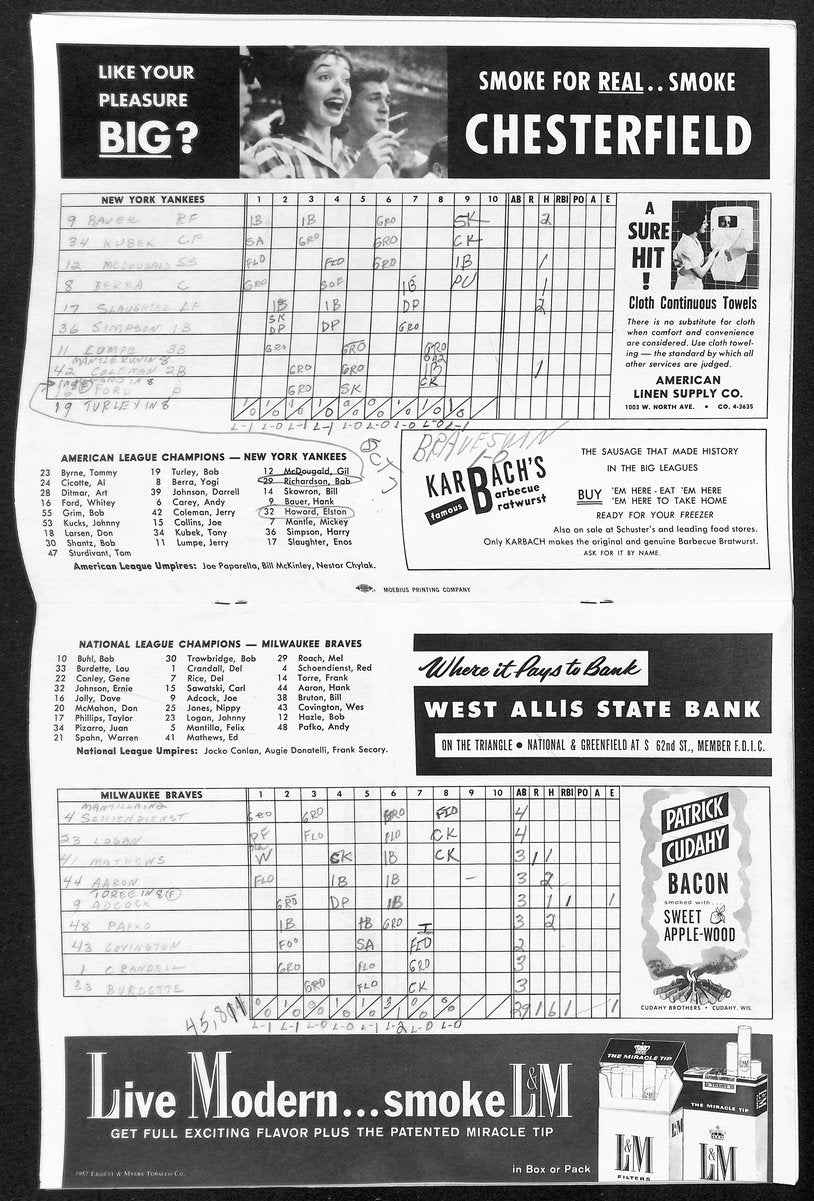 LIKE YOUR
PLEASURE
BIG?
SMOKE FOR REAL.. SMOKE
CHESTERFIELD
NEW YORK YANKEES 1 2 3 4 5 6 7 8 9 10 AB R H RBI PO A E
9 BAUER RF 1B 1B GRO SK 2
34 KUBEK CF SA GRO GRO CK
12 McDOUGALD SS FLO FLO GRO 1B 1
8 BERRA C GRO 1B PU 1
17 SLAUGHTER LF 1B 1B DP 2
36 SIMPSON 1B SK DP DP GRO
11 3B GRO GRO GRO
MANTLE RUN IN 8
42 COLEMAN 2B GRO GRO 1B 1
16 FORD P GRO SK CK
19 TURLEY IN 8
L-1 L-0 L-1 L-0 L-0 L-0 L-0 L-1
A
SURE
HIT
!
Cloth Continuous Towels
There is no substitute for cloth
when comfort and convenience
are considered. Use cloth towel-
ing — the standard by which all
other services are judged.
AMERICAN
LINEN SUPPLY CO.
1003 W. NORTH AVE. • CO. 4-3635
AMERICAN LEAGUE CHAMPIONS — NEW YORK YANKEES
23 Byrne, Tommy 19 Turley, Bob 12 McDougald, Gil
24 Cicotte, Al 8 Berra, Yogi 29 Richardson, Bob
28 Ditmar, Art 39 Johnson, Darrell 14 Skowron, Bill
16 Ford, Whitey 6 Carey, Andy 9 Bauer, Hank
55 Grim, Bob 42 Coleman, Jerry 32 Howard, Elston
53 Kucks, Johnny 15 Collins, Joe 7 Mantle, Mickey
18 Larsen, Don 34 Kubek, Tony 36 Simpson, Harry
30 Shantz, Bob 11 Lumpe, Jerry 17 Slaughter, Enos
47 Sturdivant, Tom
American League Umpires: Joe Paparella, Bill McKinley, Nestor Chylak.
OCT 7
BRAVES WIN
1-0
famous
KARBACH'S
Barbecue
Bratwurst
THE SAUSAGE THAT MADE HISTORY
IN THE BIG LEAGUES
BUY 'EM HERE - EAT 'EM HERE
'EM HERE TO TAKE HOME
READY FOR YOUR FREEZER
Also on sale at Schuster's and leading food stores.
Only KARBACH makes the original and genuine Barbecue Bratwurst.
ASK FOR IT BY NAME.
MOEBIUS PRINTING COMPANY
NATIONAL LEAGUE CHAMPIONS — MILWAUKEE BRAVES
10 Buhl, Bob 30 Trowbridge, Bob 29 Roach, Mel
33 Burdette, Lou 1 Crandall, Del 4 Schoendienst, Red
22 Conley, Gene 7 Rice, Del 14 Torre, Frank
32 Johnson, Ernie 15 Sawatski, Carl 44 Aaron, Hank
16 Jolly, Dave 9 Adcock, Joe 38 Bruton, Bill
20 McMahon, Don 25 Jones, Nippy 43 Covington, Wes
17 Phillips, Taylor 23 Logan, Johnny 12 Hazle, Bob
34 Pizarro, Juan 5 Mantilla, Felix 48 Pafko, Andy
21 Spahn, Warren 41 Mathews, Ed
National League Umpires: Jocko Conlan, Augie Donatelli, Frank Secory.
Where it Pays to Bank
WEST ALLIS STATE BANK
ON THE TRIANGLE • NATIONAL & GREENFIELD AT S 62nd ST., MEMBER F.D.I.C.
MILWAUKEE BRAVES 1 2 3 4 5 6 7 8 9 10 AB R H RBI PO A E
4 SCHIENDIENST GRO GRO GRO FLO 4
23 LOGAN FLO FLO CK 4
41 MATHEWS W CK 1B CK 3 1 1
44 AARON FLO 1B 1B - 3 2
TOREE IN 8
9 ADCOCK GRO DP 1B 3 1 1 1
48 PAFKO 1B 1B GRO 3 2
43 COVINGTON SA FLO 2
1 CRANDELL GRO FLO GRO 3
33 BURDETTE GRO FLO CK 3
29 1 6 1 1
L-1 L-1 L-0 L-0 L-1 L-2 L-0 L-0
PATRICK
CUDAHY
BACON
smoked with...
SWEET
APPLE-WOOD
CUDAHY BROTHERS • CUDAHY, WIS.
Live Modern...smoke L&M
GET FULL EXCITING FLAVOR PLUS THE PATENTED MIRACLE TIP
1957 LIGGETT & MYERS TOBACCO CO.
in Box or Pack
THE MIRACLE TIP
L&M
FILTERS
L&M
THE MIRACLE TIP
L&M